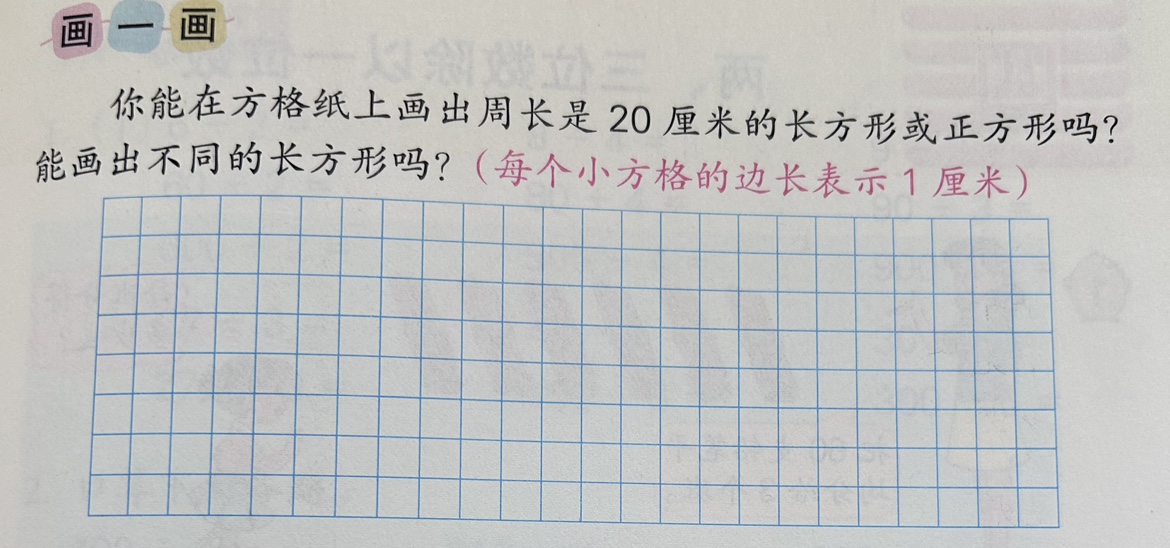 画一画
你能在方格纸上画出周长是 20 厘米的长方形或正方形吗?
能画出不同的长方形吗?(每个小方格的边长表示 1 厘米)